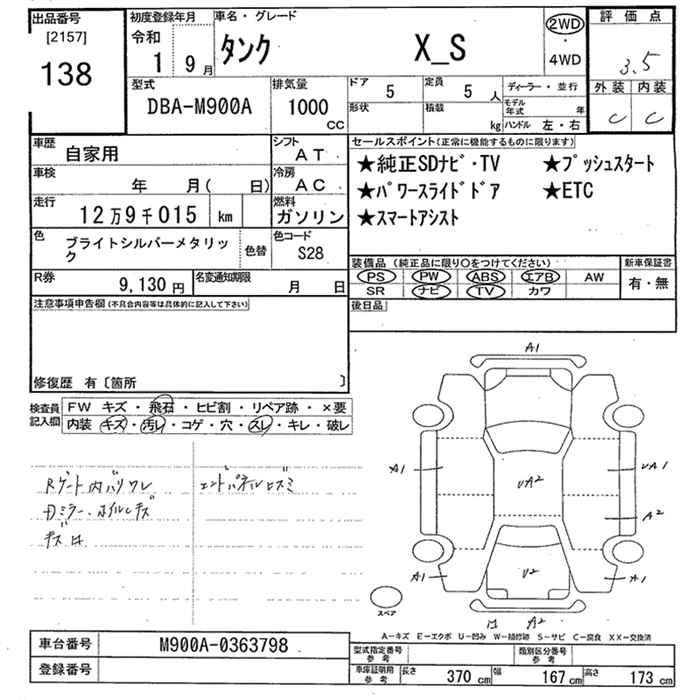 出品番号
[2157]
138
初度登録年月
令和
1 9月
車名・グレード
タンク X_S
2WD
・
4WD
評価点
3.5
外装 内装
C C
型式
DBA-M900A
排気量
1000
CC
ドア
5
定員
5 人
形状
積載
kg
ディーラー・並行
モデル年式 年
ハンドル 左・右
車歴
自家用
シフト
AT
車検
年 月( 日)
冷房
AC
走行
12万9千015 km
燃料
ガソリン
色
ブライトシルバーメタリック
色替
色コード
S28
R券
9,130 円
名変通知期限
月 日
セールスポイント(正常に機能するものに限ります)
★純正SDナビ・TV ★プッシュスタート
★パワースライドドア ★ETC
★スマートアシスト
装備品(純正品に限り○をつけてください)
PS PW ABS エアB AW
SR ナビ TV カワ
新車保証書
有・無
後日品
注意事項申告欄(不具合内容等は具体的に記入して下さい)
修復歴 有〔箇所 〕
検査員記入欄
FW キズ・飛石・ヒビ割・リペア跡・×要
内装 キズ・汚レ・コゲ・穴・スレ・キレ・破レ
Rゲート内バリワレ
エンドパネルヒズミ
Dミラー、ホイルキズ
A1
A1
UA2
UA1
A2
A1
U2
A1
A2
スペア
A-キズ E-エクボ U-凹み W-補修跡 S-サビ C-腐食 XX-交換済
車台番号
M900A-0363798
登録番号
型式指定番号
参考
類別区分番号
参考
車庫証明用
参考
長さ 370 cm
幅 167 cm
高さ 173 cm